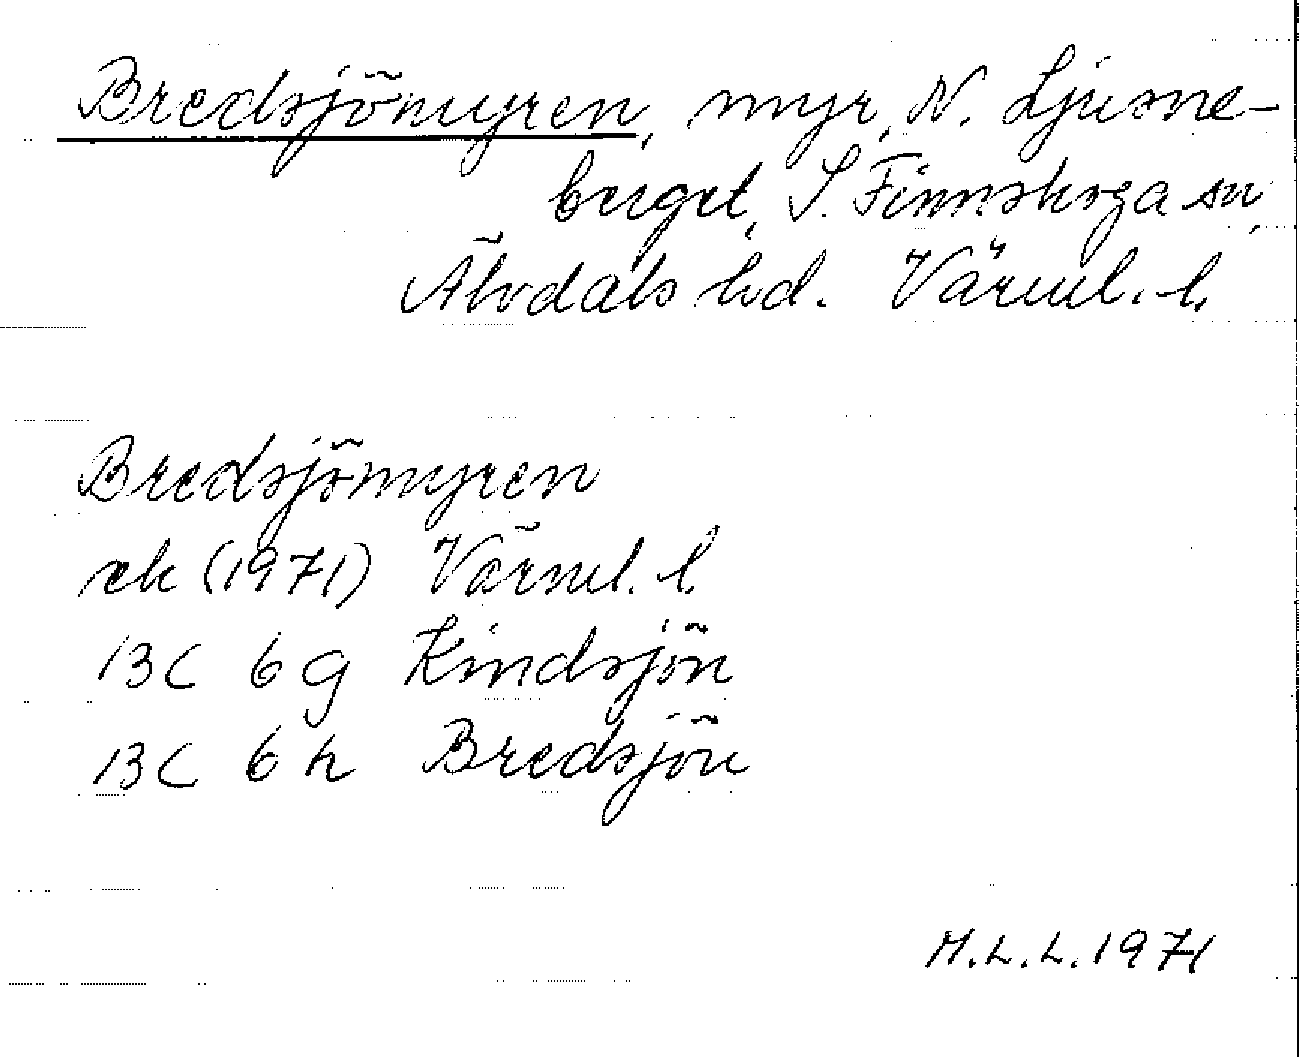 Bredsjömyren, myr, N. Ljusne-
berget, S. Finnskoga sn,
Älvdals hd. Värml. l.
Bredsjömyren
ek (1971) Värml. l.
13C 6g Kindsjön
13C 6h Bredsjön
M.L.L. 1971